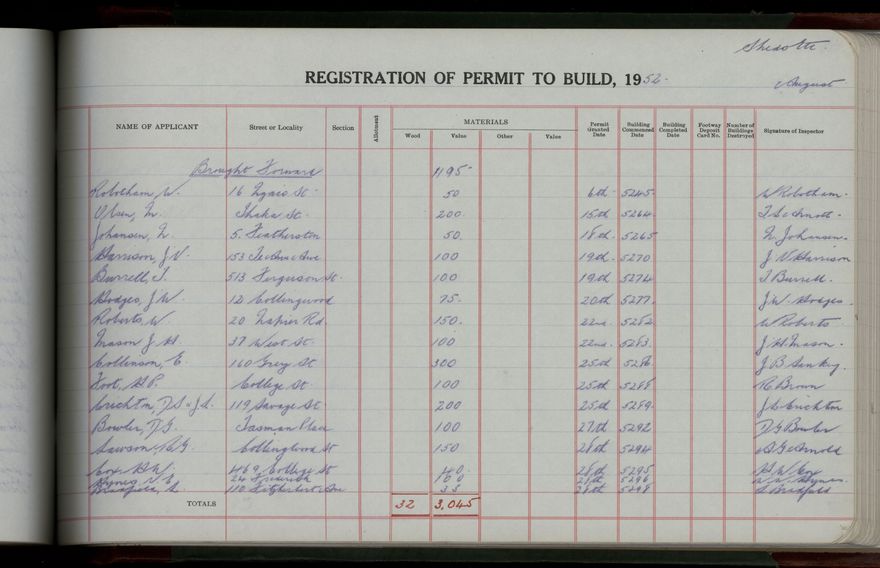 Sheds etc.
REGISTRATION OF PERMIT TO BUILD, 1952.
August
NAME OF APPLICANT Street or Locality Section Allotment MATERIALS Permit Granted Date Building Commenced Date Building Completed Date Footway Deposit Card No. Number of Buildings Destroyed Signature of Inspector
Wood Value Other Value
Brought Forward 1195
Robotham, W. 16 Ngaio St. 50 6th 5245 W Robotham.
Olsen, M. Ihaka St. 200 15th 5264
Johansen, N. 5. Featherston 50 18th 5265 N. Johansen.
Harrison, J V. 153 Te Awe Awe 100 19th 5270 J V Harrison
Burrell, I. 513 Ferguson St. 100 19th 5274 I Burrell.
Hodges, J W. 12 Collingwood 75 20th 5277 J W. Hodges.
Roberts, W. 20 Napier Rd. 150 22nd 5282 W Roberts
Mason J H. 37 West St. 100 22nd 5283 J H Mason.
Collinson, E. 160 Grey St 300 25th 5286 J B Sankey.
Foot, H P. College St. 100 25th 5288 Brown
Crichton, D S & J A. 119 Savage St 200 25th 5289 Crichton
Bowler, D G. Tasman Place 100 27th 5292 D G Bowler
Lawson, R G. Collingwood St 150 28th 5294 Arnold
Cox H W. 469 College St 40 28th 5295 H W Cox
Hynes 24 Frederick 100 5296 Hynes
Bradfield, L. 110 Fitzherbert Ave 35 28th 5298 L Bradfield
TOTALS 32 3,045